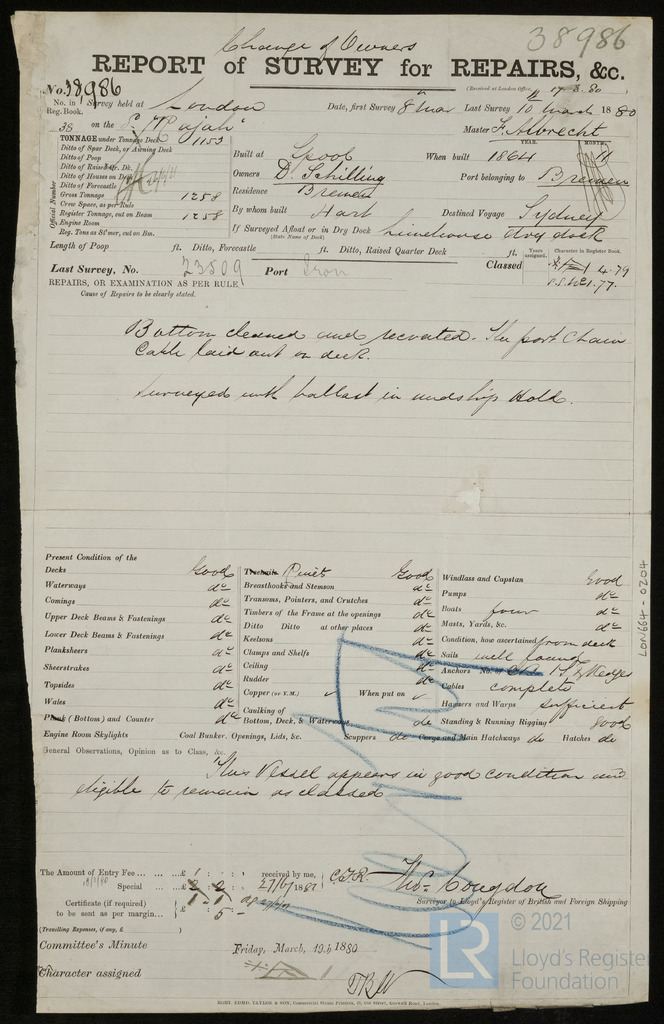 Change of Owners
38986
REPORT of SURVEY for REPAIRS, &c.
No. 38986
(Received at London Office, 17.3.80
No. in Reg. Book.
Survey held at London
Date, first Survey 8th Mar Last Survey 10th March 1880
38 on the "Rajah"
Master F. Albrecht
TONNAGE under Tonnage Deck 1153
Ditto of Spar Deck, or Awning Deck
Ditto of Poop
Ditto of Raised Qr. Dk.
Ditto of Houses on Deck
Ditto of Forecastle
Gross Tonnage 1258
Crew Space, as per Rule
Register Tonnage, cut on Beam 1258
Engine Room
Reg. Tons as St'mer, cut on Bm.
Official Number
YEAR. MONTH.
Built at Lpool When built 1864 11
Owners D. Schilling Port belonging to Bremen
Residence Bremen
By whom built Hart Destined Voyage Sydney
If Surveyed Afloat or in Dry Dock Limehouse Dry dock
(State Name of Dock)
Length of Poop ft. Ditto, Forecastle ft. Ditto, Raised Quarter Deck ft.
Years assigned. Character in Register Book.
Last Survey, No. 23809 Port Iron Classed 4.79
1.77.
REPAIRS, OR EXAMINATION AS PER RULE
Cause of Repairs to be clearly stated.
Bottom cleaned and recoated. The port Chain
Cable laid out on deck.
Surveyed with ballast in midship Hold.
Present Condition of the
Decks Good
Waterways do
Comings do
Upper Deck Beams & Fastenings do
Lower Deck Beams & Fastenings do
Planksheers do
Sheerstrakes do
Topsides do
Wales do
Plank (Bottom) and Counter do
Engine Room Skylights
Treenails Rivets Good
Breasthooks and Stemson do
Transoms, Pointers, and Crutches do
Timbers of the Frame at the openings do
Ditto Ditto at other places do
Keelsons do
Clamps and Shelfs do
Ceiling do
Rudder do
Copper (or Y.M.) ✓ When put on ✓
Caulking of Bottom, Deck, & Waterways do
Coal Bunker. Openings, Lids, &c. Scuppers do
Windlass and Capstan Good
Pumps do
Boats four do
Masts, Yards, &c. do
Condition, how ascertained from deck
Sails well found
Anchors No. of
Cables complete
Hawsers and Warps sufficient
Standing & Running Rigging good
Cargo and Main Hatchways do Hatches do
General Observations, Opinion as to Class, &c.
This Vessel appears in good condition and
eligible to remain as classed
The Amount of Entry Fee £1 : : received by me,
Special £2 : 2 :
Certificate (if required) to be sent as per margin 5
(Travelling Expenses, if any, £ )
Thos. Congdon
Surveyor to Lloyd's Register of British and Foreign Shipping
Committee's Minute Friday, March, 19th 1880
Character assigned
ROBT. EDMD. TAYLOR & SON, Commercial Steam Printers, 19, Old Street, Goswell Road, London.
LON664-0204
LR
© 2021
Lloyd's Register
Foundation